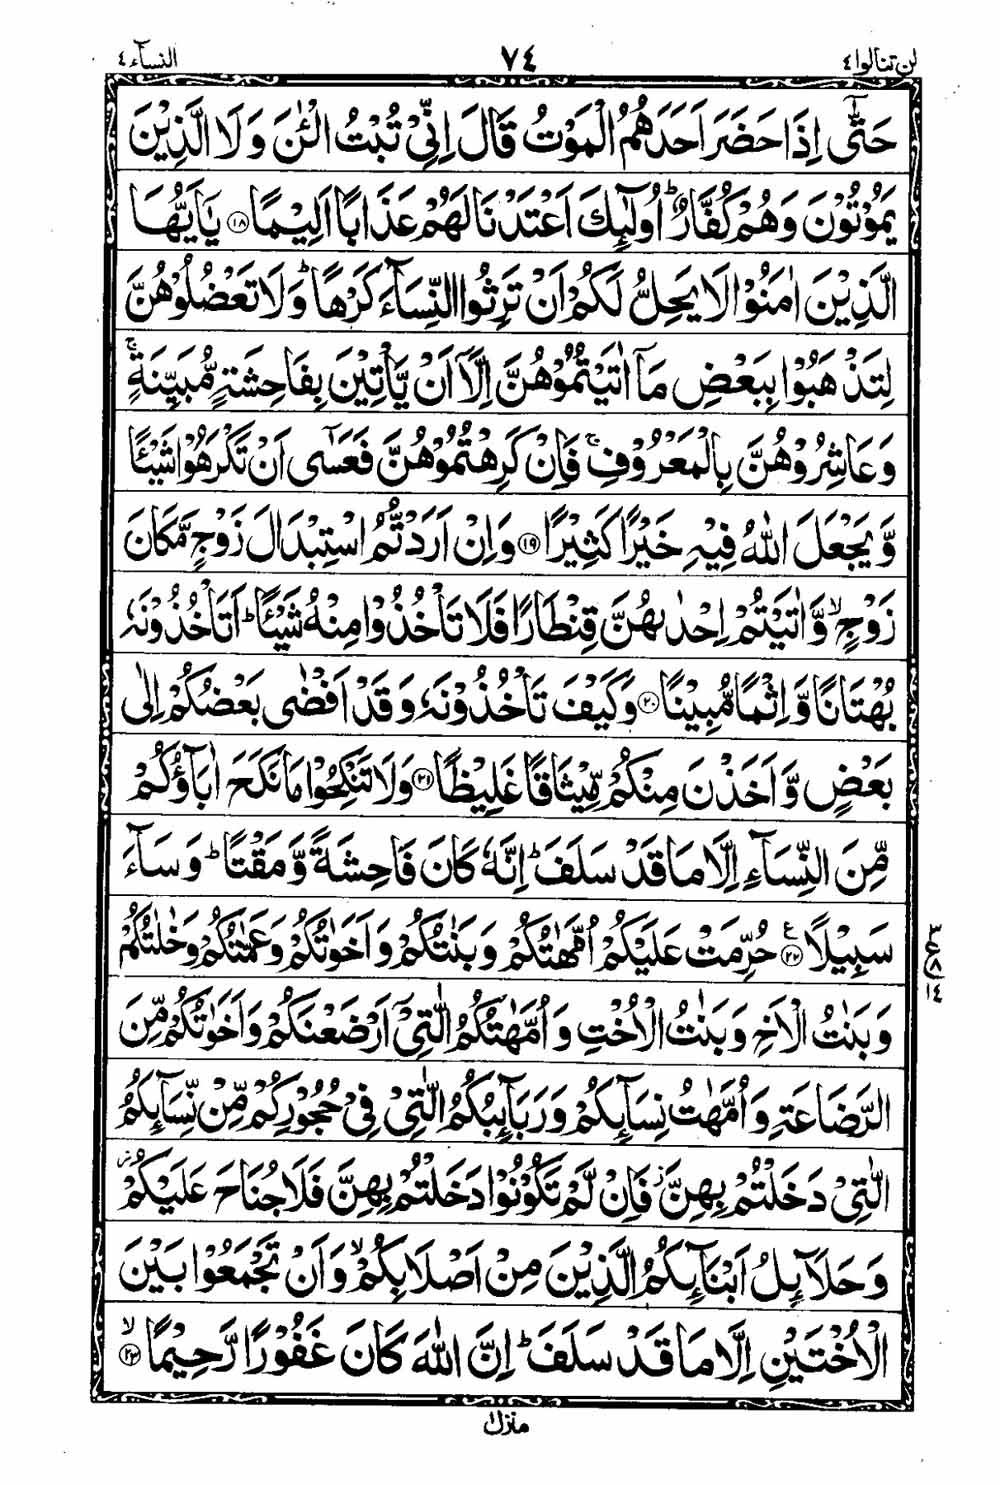 لن تنالوا ٤ ٧٤ النسآء ٤
حَتّٰۤى اِذَا حَضَرَ اَحَدَهُمُ الْمَوْتُ قَالَ اِنِّيْ تُبْتُ الْـٰٔنَ وَ لَا الَّذِيْنَ
يَمُوْتُوْنَ وَ هُمْ كُفَّارٌ ؕ اُولٰٓىِٕكَ اَعْتَدْنَا لَهُمْ عَذَابًا اَلِيْمًا ﴿١٨﴾ يٰۤاَيُّهَا
الَّذِيْنَ اٰمَنُوْا لَا يَحِلُّ لَكُمْ اَنْ تَرِثُوا النِّسَآءَ كَرْهًا ؕ وَ لَا تَعْضُلُوْهُنَّ
لِتَذْهَبُوْا بِبَعْضِ مَاۤ اٰتَيْتُمُوْهُنَّ اِلَّاۤ اَنْ يَّاْتِيْنَ بِفَاحِشَةٍ مُّبَيِّنَةٍ ۚ
وَ عَاشِرُوْهُنَّ بِالْمَعْرُوْفِ ۚ فَاِنْ كَرِهْتُمُوْهُنَّ فَعَسٰۤى اَنْ تَكْرَهُوْا شَيْـًٔا
وَّ يَجْعَلَ اللّٰهُ فِيْهِ خَيْرًا كَثِيْرًا ﴿١٩﴾ وَ اِنْ اَرَدْتُّمُ اسْتِبْدَالَ زَوْجٍ مَّكَانَ
زَوْجٍ ۙ وَّ اٰتَيْتُمْ اِحْدٰىهُنَّ قِنْطَارًا فَلَا تَاْخُذُوْا مِنْهُ شَيْـًٔا ؕ اَتَاْخُذُوْنَهٗ
بُهْتَانًا وَّ اِثْمًا مُّبِيْنًا ﴿٢٠﴾ وَ كَيْفَ تَاْخُذُوْنَهٗ وَ قَدْ اَفْضٰى بَعْضُكُمْ اِلٰى
بَعْضٍ وَّ اَخَذْنَ مِنْكُمْ مِّيْثَاقًا غَلِيْظًا ﴿٢١﴾ وَ لَا تَنْكِحُوْا مَا نَكَحَ اٰبَآؤُكُمْ
مِّنَ النِّسَآءِ اِلَّا مَا قَدْ سَلَفَ ؕ اِنَّهٗ كَانَ فَاحِشَةً وَّ مَقْتًا ؕ وَ سَآءَ
سَبِيْلًا ﴿٢٢﴾ ع حُرِّمَتْ عَلَيْكُمْ اُمَّهٰتُكُمْ وَ بَنٰتُكُمْ وَ اَخَوٰتُكُمْ وَ عَمّٰتُكُمْ وَ خٰلٰتُكُمْ
٣ ع ٨ ١٤
وَ بَنٰتُ الْاَخِ وَ بَنٰتُ الْاُخْتِ وَ اُمَّهٰتُكُمُ الّٰتِيْۤ اَرْضَعْنَكُمْ وَ اَخَوٰتُكُمْ مِّنَ
الرَّضَاعَةِ وَ اُمَّهٰتُ نِسَآىِٕكُمْ وَ رَبَآىِٕبُكُمُ الّٰتِيْ فِيْ حُجُوْرِكُمْ مِّنْ نِّسَآىِٕكُمُ
الّٰتِيْ دَخَلْتُمْ بِهِنَّ ؗ فَاِنْ لَّمْ تَكُوْنُوْا دَخَلْتُمْ بِهِنَّ فَلَا جُنَاحَ عَلَيْكُمْ ؗ
وَ حَلَآىِٕلُ اَبْنَآىِٕكُمُ الَّذِيْنَ مِنْ اَصْلَابِكُمْ ۙ وَ اَنْ تَجْمَعُوْا بَيْنَ
الْاُخْتَيْنِ اِلَّا مَا قَدْ سَلَفَ ؕ اِنَّ اللّٰهَ كَانَ غَفُوْرًا رَّحِيْمًا ﴿٢٣﴾ ۙ
منزل ١